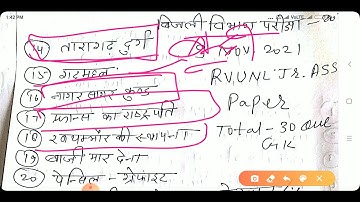 1:42 PM
बिजली विभाग परीक्षा -
14 तारागढ़ दुर्ग
NOV 2021
15 गढ़महल
RVUNL Jr. ASS
16 नागर सागर कुण्ड
Paper
17 फ्रान्स का राष्ट्रपति
18 रणथम्भौर की स्थापना
Total - 30 Que
GK
19 बाजी मार देना
20 पेन्सिल - ग्रेफाइट